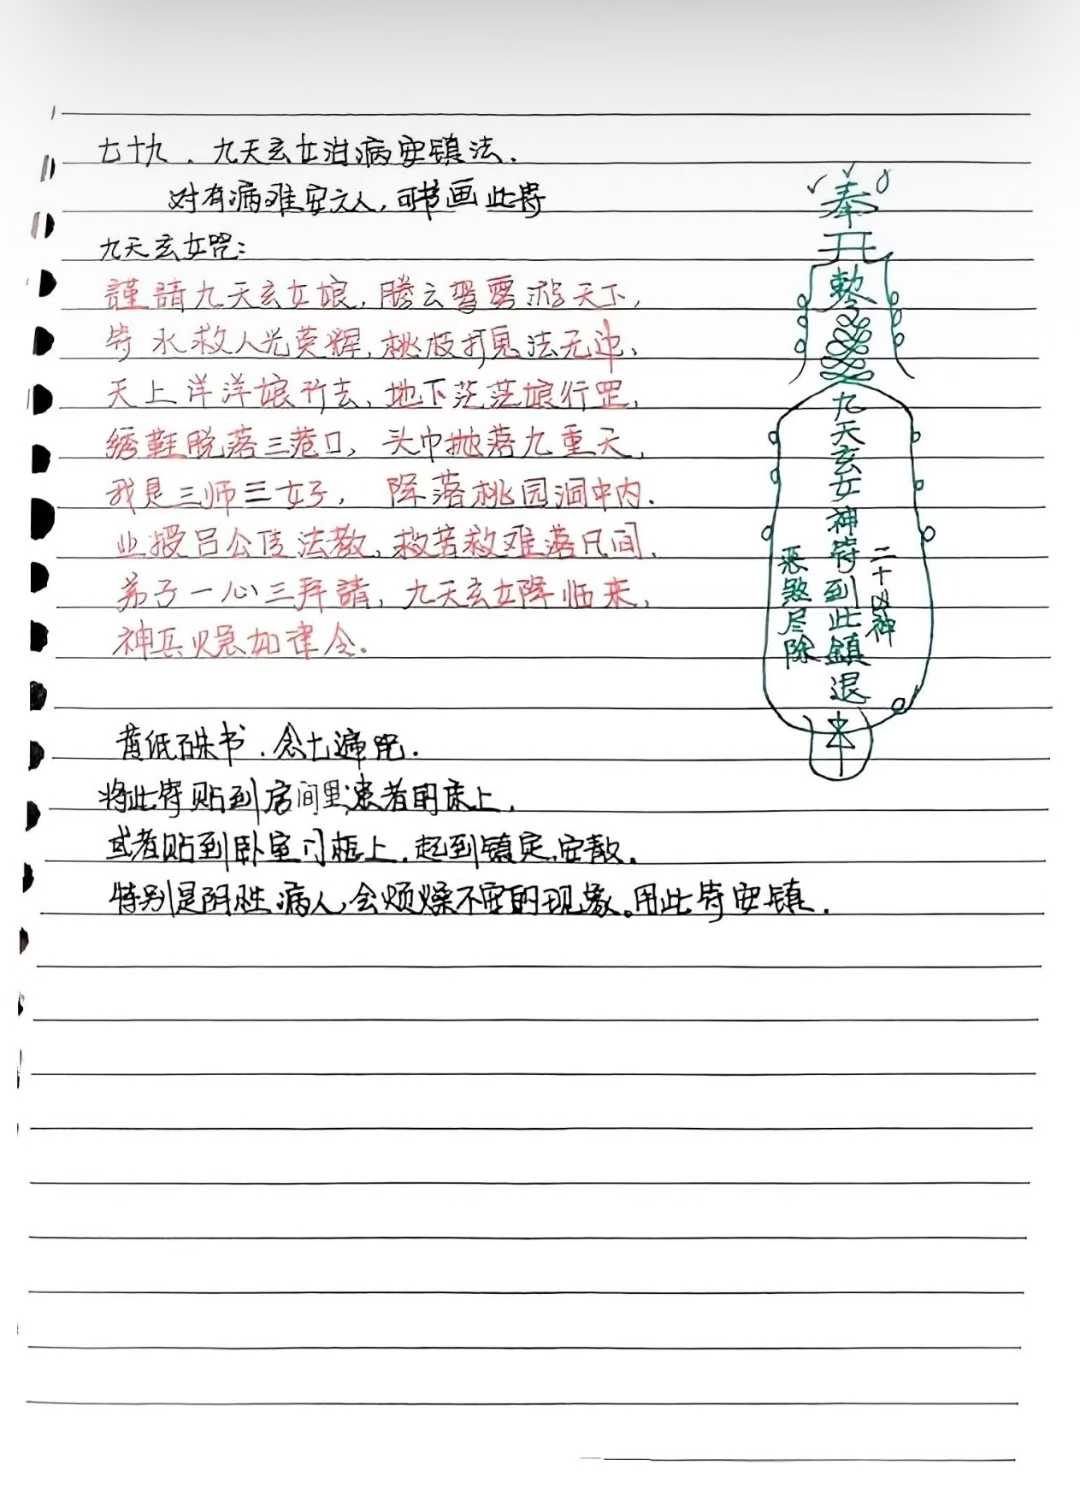 七十九．九天玄女治病安镇法．
对有病难安之人，可书画此符
九天玄女咒：
謹請九天玄女娘，腾云驾雾游天下，
符水救人光英辉，桃枝打鬼法无边，
天上洋洋娘行去，地下茫茫娘行罡，
绣鞋脱落三巷口，头巾抛落九重天，
我是三师三女子，降落桃园洞中内．
业授吕公传法教，救苦救难落凡间，
弟子一心三拜請，九天玄女降临来，
神兵火急如律令．
黄纸硃书．念七遍咒．
将此符贴到房间里患者的床上，
或者贴到卧室门框上．起到镇定，安散。
特别是阴性病人，会烦燥不安的现象。用此符安镇．
奉
勅
九天玄女神符到此鎮退
二十凶神
恶煞尽除